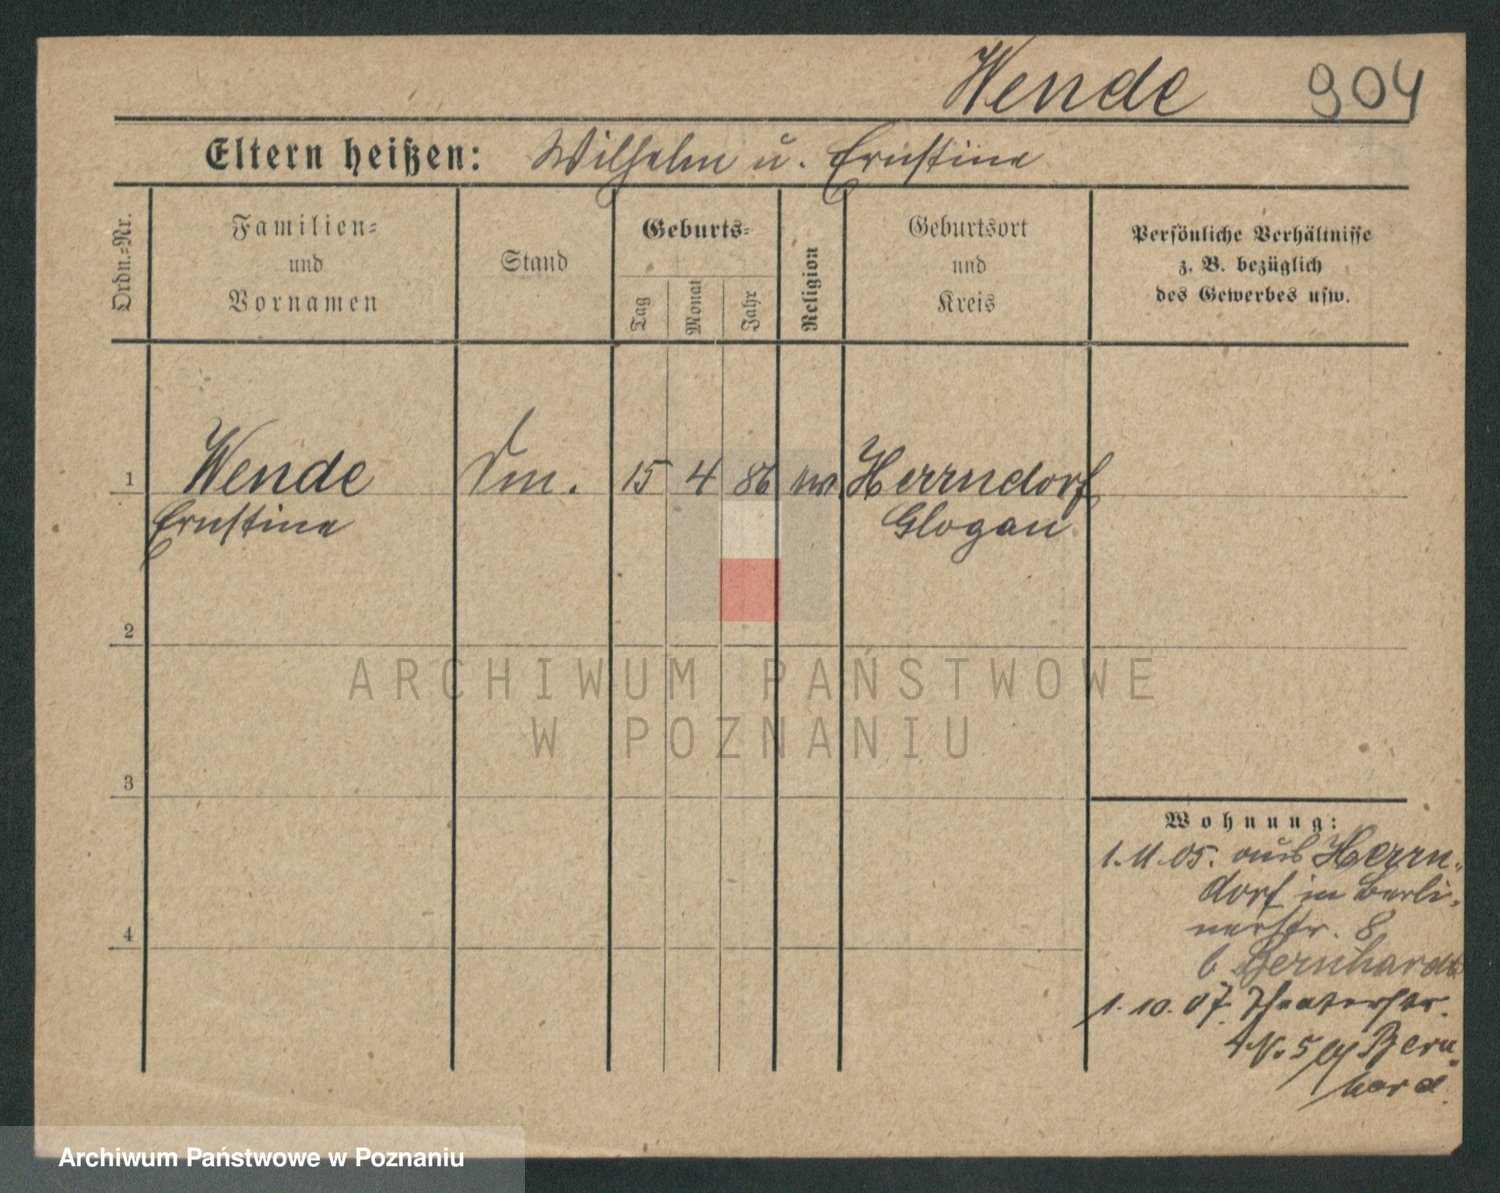 Wende 904
Eltern heißen: Wilhelm u. Ernstine
Ordn.-Nr.
Familien-
und
Vornamen
Stand
Geburts-
Tag
Monat
Jahr
Religion
Geburtsort
und
Kreis
Persönliche Verhältnisse
z. B. bezüglich
des Gewerbes usw.
1 Wende 15 4 86 Herrndorf
Ernstine Glogau
2
3
4
ARCHIWUM PAŃSTWOWE
W POZNANIU
Wohnung:
1.11.05. aus Herrn-
dorf in Berli-
nerstr. 8
b Bernhardt
1.10.07. Theaterstr.
4 N. 5 Bern-
hard.
Archiwum Państwowe w Poznaniu